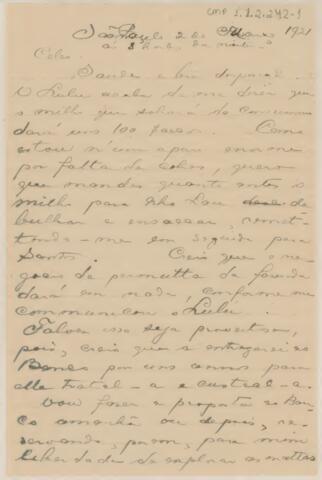 CMP 1.1.2.242-1
São Paulo 2 de Março 1921
ás 8 horas da noite.
Celso.
Saude e bem
O Lulu acaba de me dizer que
o milho que
dará uns 100 saccos. Como
estou n'um apuro enorme
por falta de cobres, quero
que mandes quanto antes o
milho para São
bulhar e ensaccar, remet-
tendo-me em seguida para
Santos. Creio que o ne-
gocio da permutta da fazenda
dará em nada, conforme me
communicou o Lulu.
Talvez isso seja proveitoso,
pois, creio que a entregarei ao
Banco por uns annos para
elle tratal-a e custeal-a.
Vou fazer a proposta ao Ban-
co amanhã ou depois, re-
servando, porem, para mim
liberdade de explorar as mattas